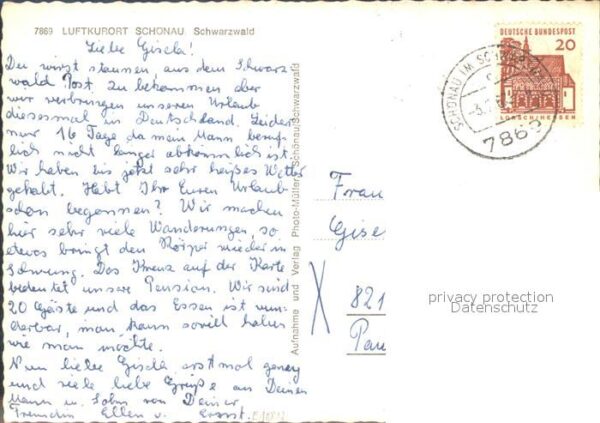 7869 LUFTKURORT SCHÖNAU Schwarzwald
Liebe Gisela!
Du wirst staunen aus dem Schwarz
wald Post zu bekommen aber
wir verbringen unseren Urlaub
diesesmal in Deutschland. Leider
nur 16 Tage da mein Mann beruf
lich nicht länger abkömmlich ist.
Wir haben bis jetzt sehr heißes Wetter
gehabt. Habt Ihr Euren Urlaub
schon begonnen? Wir machen
hier sehr viele Wanderungen, so
etwas bringt den Körper wieder in
Schwung. Das Kreuz auf der Karte
bedeutet unsere Pension. Wir sind
20 Gäste und das Essen ist wun-
derbar, man kann soviel haben
wie man möchte.
Nun liebe Gisela erstmal genug
und viele liebe Grüße an Deinen
Mann u. Sohn von Deiner
Freundin Ellen u. Ernst.
Aufnahme und Verlag Photo-Müller, Schönau/Schwarzwald
DEUTSCHE BUNDESPOST
20
LORSCH/HESSEN
SCHÖNAU IM SCHWARZW
7869
Frau
Gise
X
821
privacy protection
Datenschutz